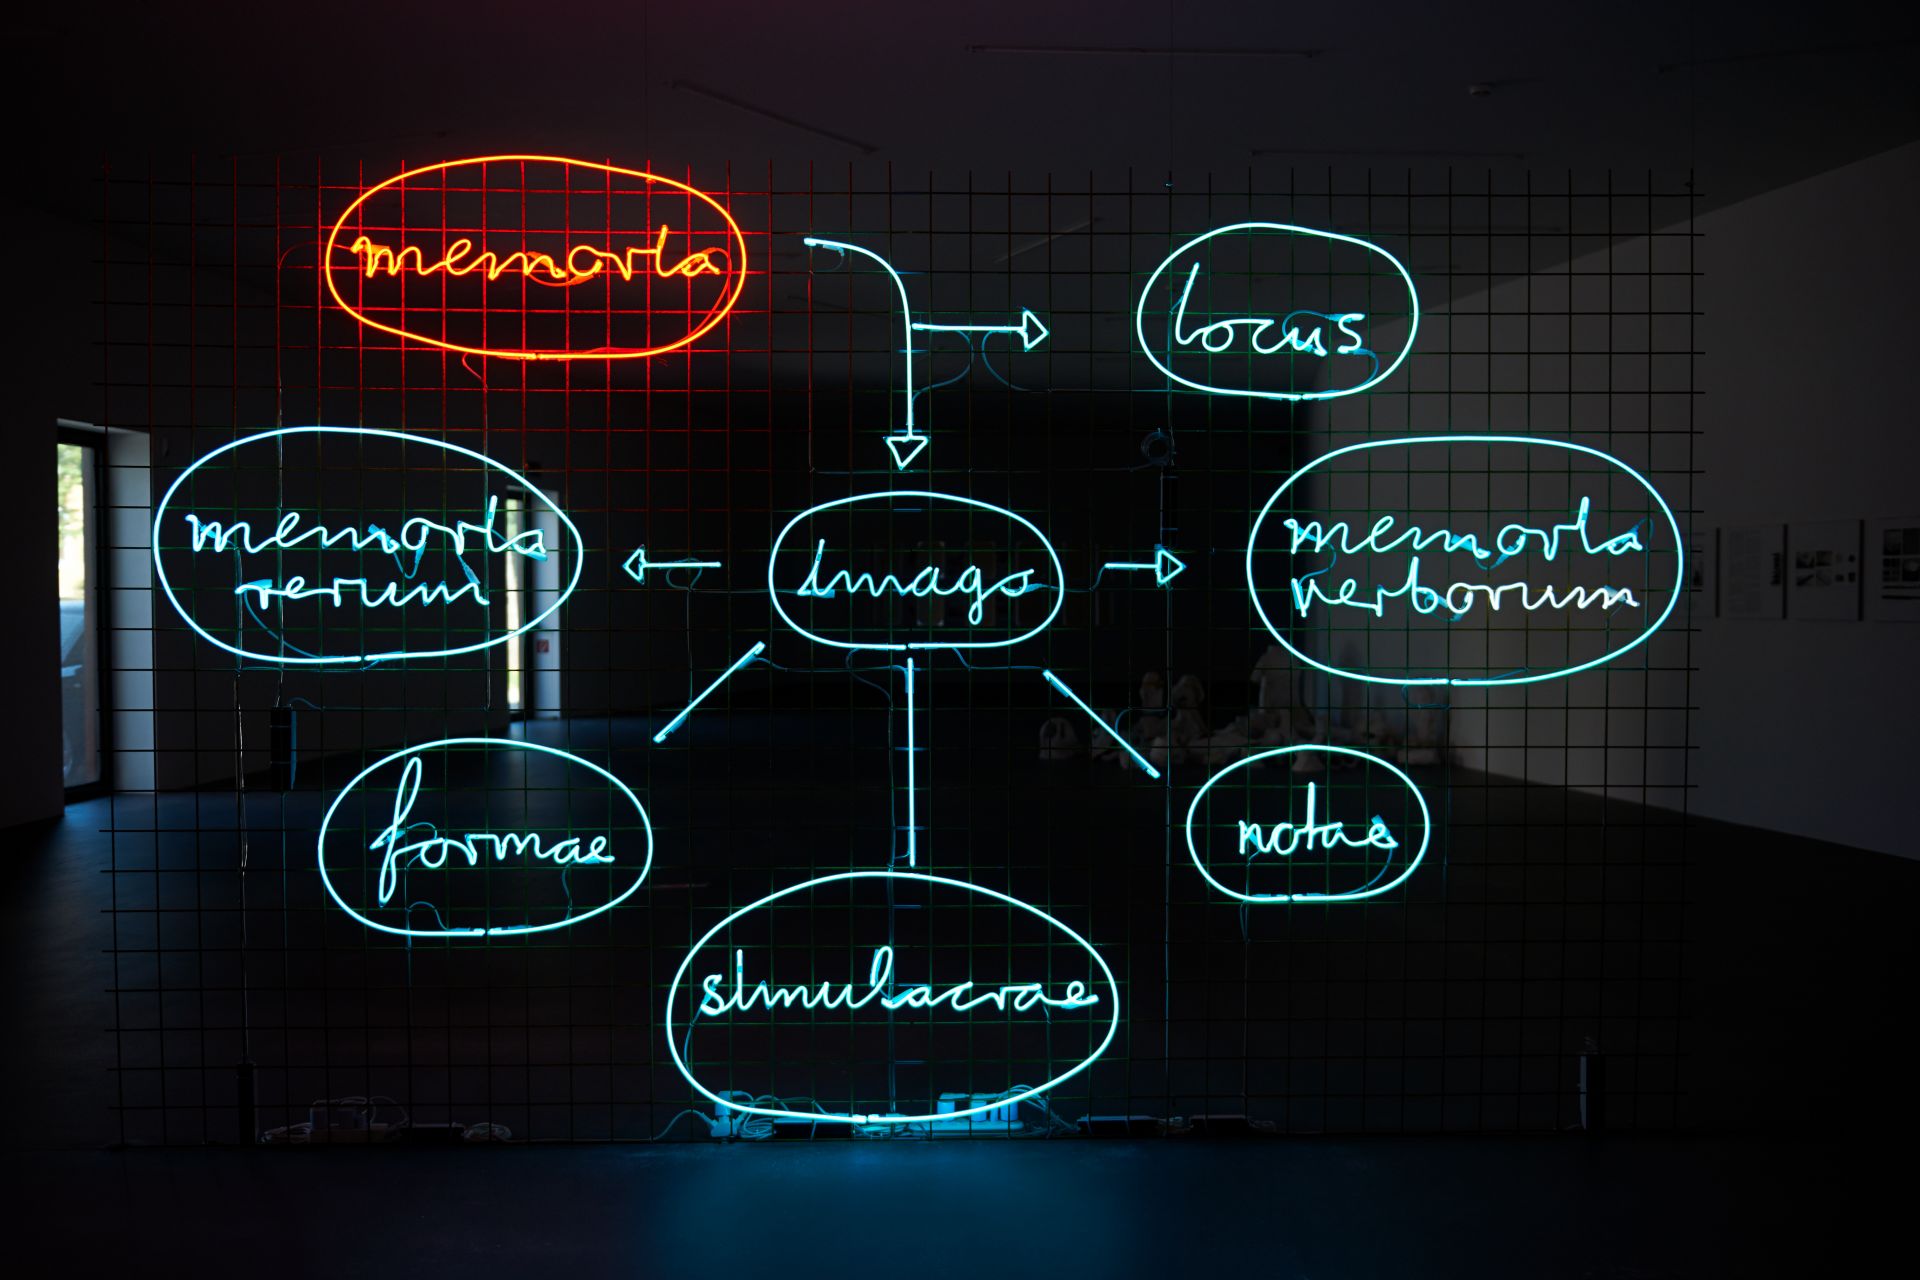 memoria
locus
memoria
rerum
imago
memoria
verborum
formae
notae
simulacrae